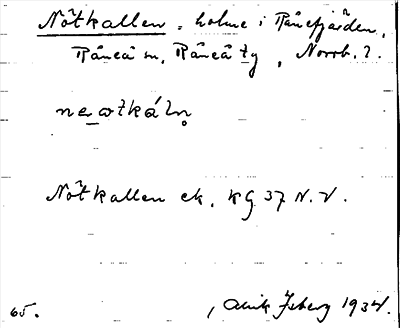 Nötkallen, holme i Rånefjärden,
Råneå sn, Råneå tg, Norrb. l.
Nötkallen ek. KG 37 N.V.
65. Isberg 1934.